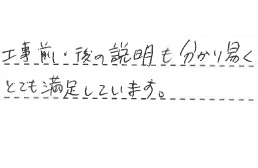 工事前・後の説明も分かり易く
とても満足しています。